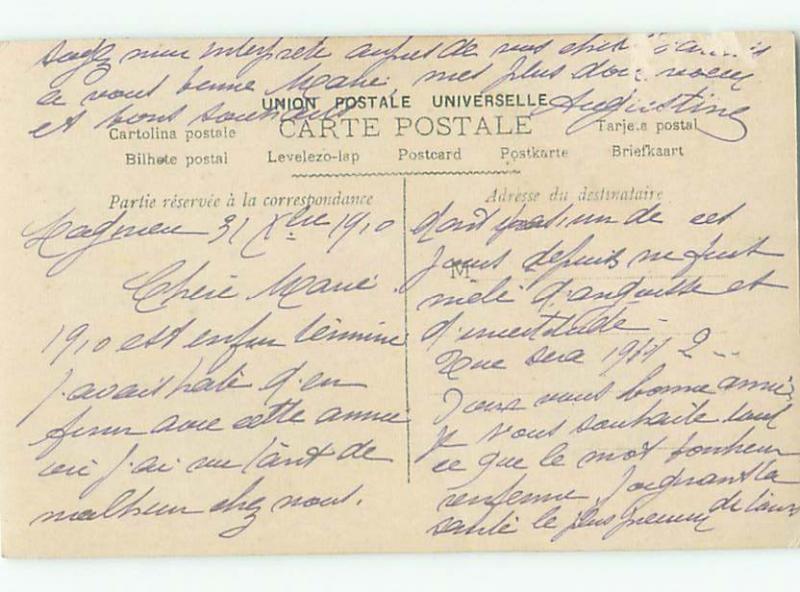 Soyez mon interprète auprès de vos chers
à vous bonne Marie, mes plus doux voeux
et bons souhaits Augustine
UNION POSTALE UNIVERSELLE
CARTE POSTALE
Cartolina postale
Tarjeta postal
Bilhete postal Levelezo-lap Postcard Postkarte Briefkaart
Partie réservée à la correspondance
Adresse du destinataire
31 Xbre 1910
Chère Marie.
1910 est enfin terminé
j'avais hâte d'en
finir avec cette année
où j'ai vu tant de
malheur chez nous.
dont pas un de ces
M
jours depuis ne fusse
mêlé d'angoisse et
d'incertitude -
Que sera 1911 ? ...
Pour vous bonne amie,
je vous souhaite tout
ce que le mot bonheur
renferme. Joignant la
santé le plus précieux de tous